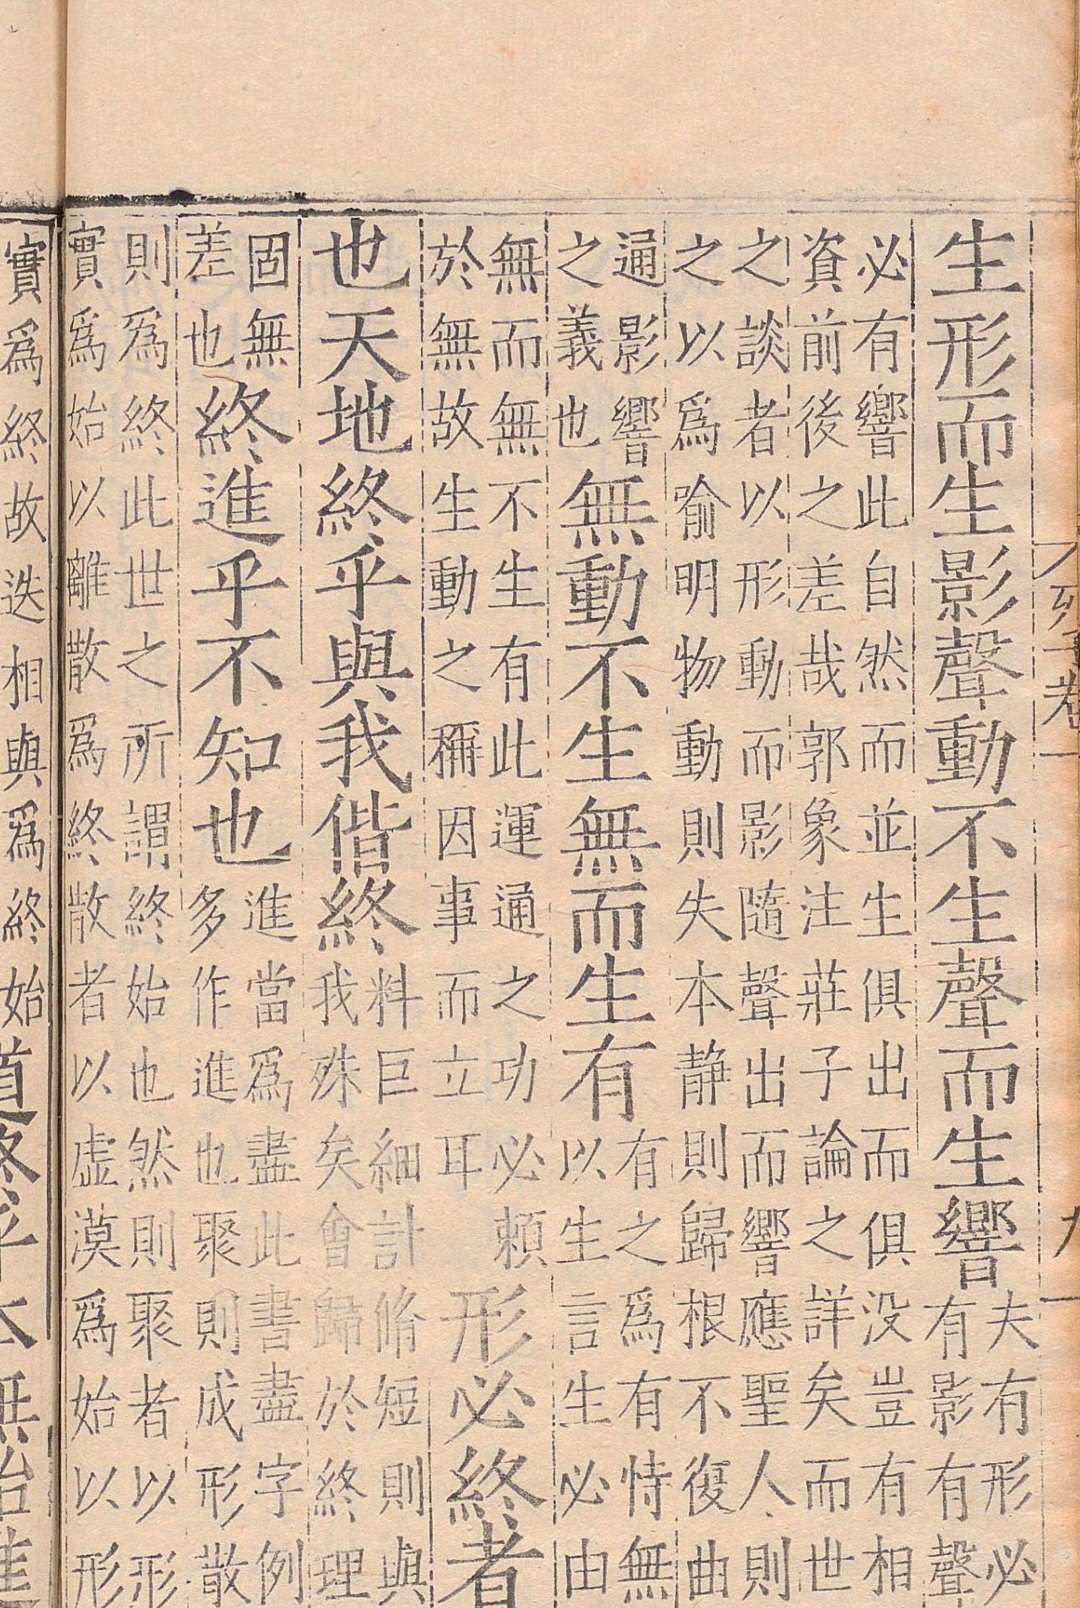 生形而生影聲動不生聲而生響夫有形必
有影有聲
必有響此自然而並生俱出而俱没豈有相
資前後之差哉郭象注莊子論之詳矣而世
之談者以形動而影隨聲出而響應聖人則
之以爲喻明物動則失本静則歸根不復曲
通影響
之義也
無動不生無而生有
有之爲有恃無
以生言生必由
無而無不生有此運通之功必賴
於無故生動之稱因事而立耳
形必終者
也天地終乎與我偕終
料巨細計脩短則與
我殊矣會歸於終理
固無
差也
終進乎不知也
進當爲盡此書盡字例
多作進也聚則成形散
則爲終此世之所謂終始也然則聚者以形
實爲始以離散爲終散者以虚漠爲始以形
實爲終故迭相與爲終始
道終乎本無始進
卷一
九